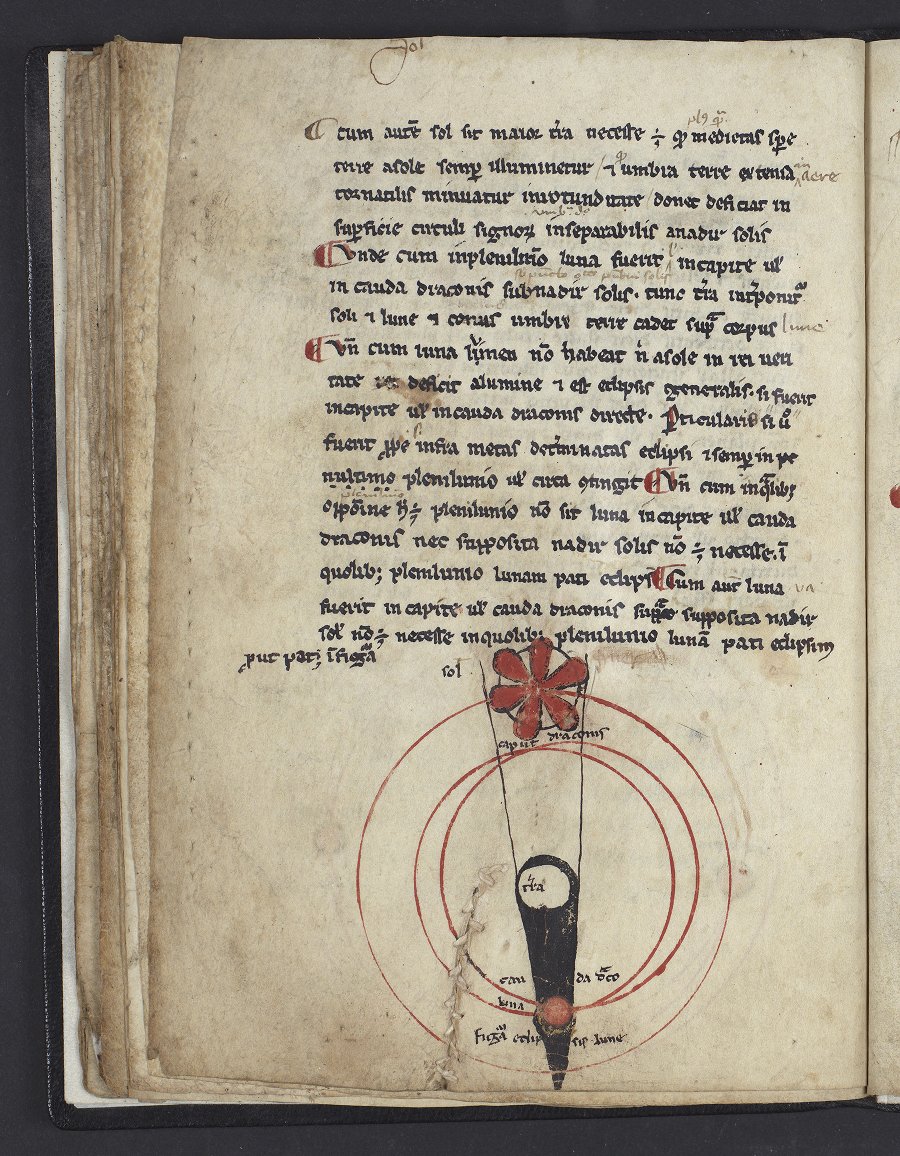 Cum autē sol sit maior t̄ra necesse ÷ qͥ medietas spe
terre a sole semp̄ illuminetur ⁊ umbra terre extensa in aere
tornatilis minuatur in rotunditate donec deficiat in
sup̄ficie circuli signoꝝ inseparabilis a nadir solis
Unde cum in plenilunio luna fuerit in capite uł
in cauda draconis sub nadir solis . tunc t̄ra int̄ponit᷑
soli ⁊ lune ⁊ conus umbre terre cadet sup̄ corpus lune
Vn̄ cum luna lumen nō habeat n̄ a sole in rei ueri
tate deficit a lumine ⁊ est eclipsis generalis . si fuerit
in capite uł in cauda draconis directe . P̄ticularis si ů
fuerit ꝓpe infra metas det̄minatas eclipsi ⁊ semp̄ in pe
nultimo plenilunio uł circa ꝯtingit Vn̄ cum in q̄lib;
oppōne h̄ ÷ plenilunio nō sit luna in capite uł cauda
draconis nec supposita nadir solis nō ÷ necesse . ī
quolib; plenilunio lunam pati eclipsī Cum aut̄ luna
fuerit in capite uł cauda draconis supposita nadir
sol̄ nō ÷ necesse in quolib; plenilunio lunā pati eclipsim
ꝓut pat; ī figᵃ
sol
caput draconis
t̄ra
cauda dͣco
luna
figᵃ eclipsis lune